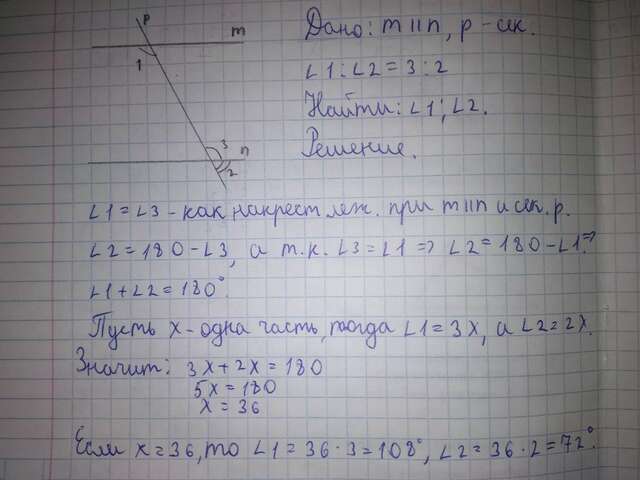 p
m
1
3
n
2
Дано: m II n, p - сек.
∠1 : ∠2 = 3 : 2
Найти: ∠1; ∠2.
Решение.
∠1 = ∠3 - как накрест леж. при m II n и сек. p.
∠2 = 180 - ∠3, а т.к. ∠3 = ∠1 => ∠2 = 180 - ∠1 =>
∠1 + ∠2 = 180°.
Пусть x - одна часть, тогда ∠1 = 3x, а ∠2 = 2x.
Значит: 3x + 2x = 180
5x = 180
x = 36
Если x = 36, то ∠1 = 36 · 3 = 108°, ∠2 = 36 · 2 = 72°.